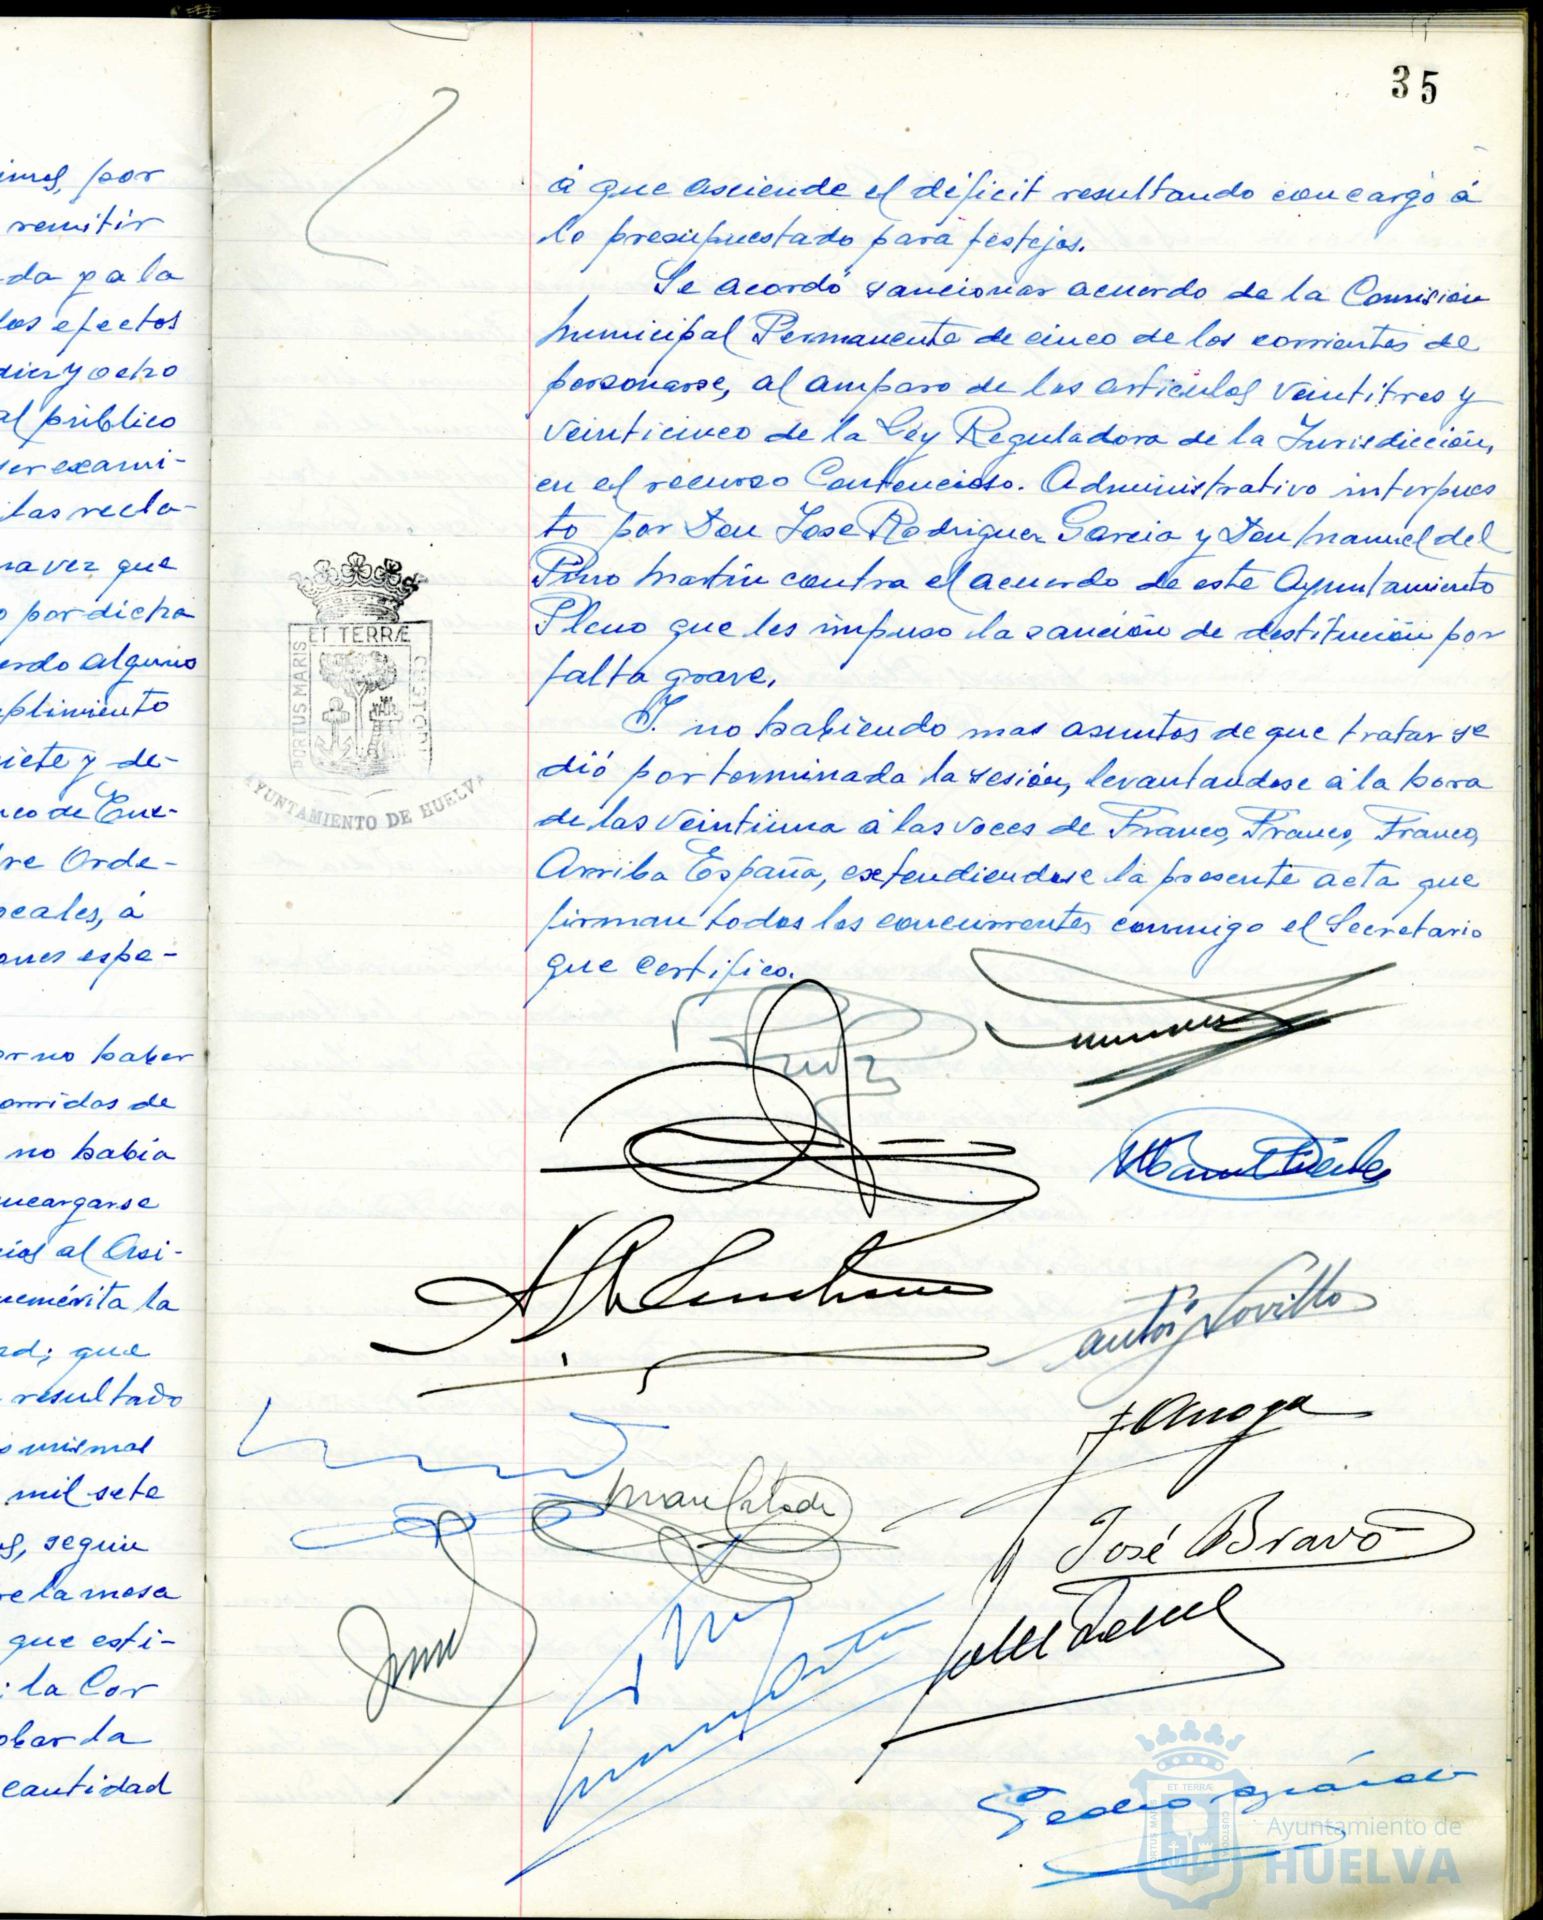 imas, por
remitir
da y a la
los efectos
diez y ocho
al público
ser exami-
las recla-
na vez que
o por dicha
erdo alguno
plimiento
iete y de-
neo de Ene-
bre Orde-
ocales, á
ones espe-
or no haber
corridas de
no había
ncargarse
cias al Asi-
nemérita la
ad; que
resultado
s mismas
mil sete
s, según
re la mesa
que esti-
la Cor
obar la
cantidad
35
á que asciende el déficit resultando con cargo á
lo presupuestado para festejos.
Se acordó sancionar acuerdo de la Comisión
Municipal Permanente de cinco de los corrientes de
personarse, al amparo de los articulos veintitres y
veinticinco de la Ley Reguladora de la Jurisdicción,
en el recurso Contencioso-Administrativo interpues
to por Don Jose Rodriguez Garcia y Don Manuel del
Pino Martín contra el acuerdo de este Ayuntamiento
Pleno que les impuso la sanción de destitución por
falta grave.
Y no habiendo mas asuntos de que tratar se
dió por terminada la sesión, levantandose á la hora
de las veintiuna á las voces de Franco, Franco, Franco,
Arriba España, extendiendose la presente acta que
firman todos los concurrentes conmigo el Secretario
que certifico.
PORTUS MARIS ET TERRÆ CUSTODIA
AYUNTAMIENTO DE HUELVA
José Bravo
PORTUS MARIS ET TERRÆ CUSTODIA
Ayuntamiento de
HUELVA